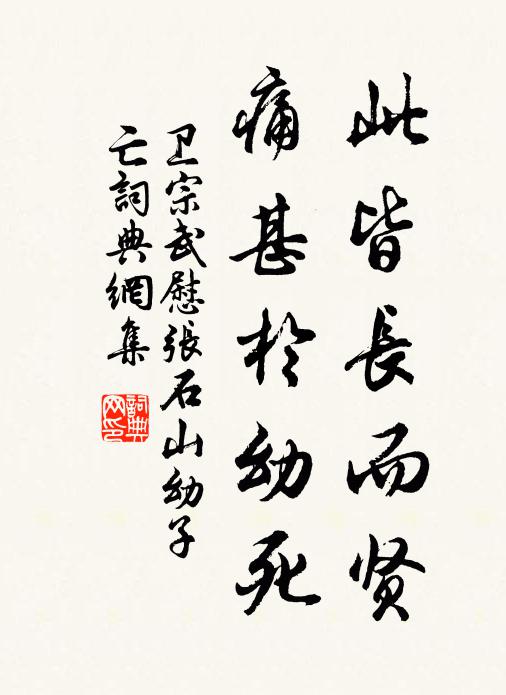 此皆長而贤
痛甚於幼死
卫宗武慰張石山幼子
亡詞典網集
詞典网印